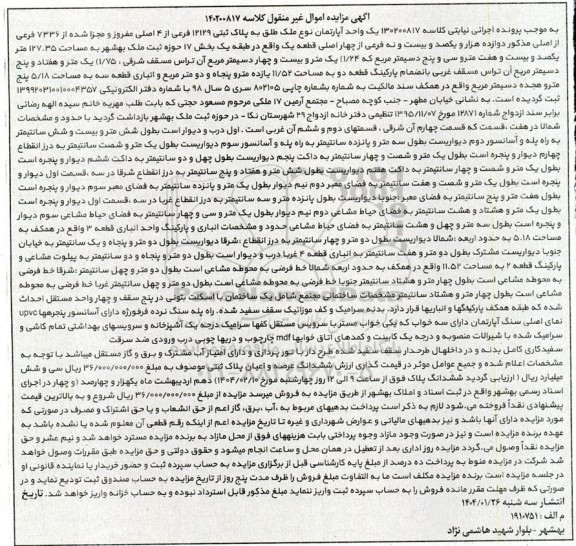 آگهی مزایده اموال غیر منقول کلاسه ۱۴۰۲۰۰۸۱۷
به موجب پرونده اجرائی نیابتی کلاسه ۱۴۰۲۰۰۸۱۷ یک واحد آپارتمان نوع ملک طلق به پلاک ثبتی ۱۲۱۲۹ فرعی از ۴ اصلی مفروز و مجزا شده از ۷۳۳۶ فرعی
از اصلی مذکور دوازده هزار و یکصد و بیست و نه فرعی از چهار اصلی قطعه یک واقع در طبقه یک بخش ۱۷ حوزه ثبت ملک بهشهر به مساحت ۱۲۷.۳۵ متر
یکصد و بیست و هفت مترو سی و پنج دسیمتر مربع که (۱/۲۴) یک متر و بیست و چهار دسیمتر مربع آن تراس مسقف شرقی ، (۱/۷۵) یک متر و هفتاد و پنج
دسیمتر مربع آن تراس مسقف غربی بانضمام پارکینگ قطعه دو به مساحت ۱۱/۵۲ یازده مترو پنجاه و دو متر مربع و انباری قطعه سه به مساحت ۵/۱۸ پنج
مترو هجده دسیمتر مربع واقع در همکف سند مالکیت به شماره چاپی ۸۰۲۱۰۵ سری ۵ سال ۹۸ با شماره دفتر الکترونیکی ۱۳۹۹۲۰۳۱۰۰۱۰۰۰۴۳۵۷
ثبت گردیده است. به نشانی خیابان مطهر - جنب کوچه مصباح - مجتمع آرمین ۱۷ ملکی مرحوم مسعود حجتی که بابت طلب مهریه خانم سیده الهه رضائی
برابر سند ازدواج شماره ۱۲۸۷۱ مورخ ۱۳۹۵/۱۱/۰۷ تنظیمی دفتر خانه ازدواج ۲۹ شهرستان نکا - در حوزه ثبت ملک بهشهر بازداشت گردید با حدود و مشخصات
شمالا در هفت ،قسمت که قسمت چهارم آن شرقی ، قسمتهای دوم و ششم آن غربی است . اول درب و دیوار است بطول شش متر و بیست و شش سانتیمتر
به راه پله و آسانسور دوم دیواریست بطول سه متر و پانزده سانتیمتر به راه پله و آسانسور سوم دیواریست بطول یک متر و شصت سانتیمتر به درز انقطاع
چهارم دیوار و پنجره است بطول یک متر و شصت و چهار سانتیمتر به داکت پنجم دیواریست بطول چهل و دو سانتیمتر به داکت ششم دیوار و پنجره است
بطول یک متر و شصت و چهار سانتیمتر به داکت هفتم دیواریست بطول شش متر و هفتاد و پنج سانتیمتر به درز انقطاع شرقا در سه ،قسمت اول دیوار و
پنجره است بطول یک متر و شصت و هفت سانتیمتر به فضای معبر دوم نیم دیوار بطول یک متر و پانزده سانتیمتر به فضای معبر سوم دیوار و پنجره است
بطول هفت متر و پنج سانتیمتر به فضای معبر جنوبا دیواریست بطول پانزده متر و سه سانتیمتر به درز انقطاع غربا در سه ،قسمت اول دیوار و پنجره است
بطول یک متر و هشتاد و هشت سانتیمتر به فضای حیاط مشاعی دوم نیم دیوار بطول یک متر و سی و چهار سانتیمتر به فضای حیاط مشاعی سوم دیوار
و پنجره است بطول سه متر و چهل و هشت سانتیمتر به فضای حیاط مشاعی حدود و مشخصات انباری و پارکینگ واحد انباری قطعه ۳ واقع در همکف به
مساحت ۵.۱۸ به حدود اربعه :شمالا دیواریست بطول دو متر و چهار سانتیمتر به درز انقطاع :شرقا دیواریست بطول دو متر و پنجاه و یک سانتیمتر به خیابان
جنوبا دیواریست مشترک بطول دو متر و هفت سانتیمتر به انباری قطعه ۴ غربا درب و دیوار است بطول دو متر و پنجاه و دو سانتیمتر به پیلوت مشاعی و
پارکینگ قطعه ۲ به مساحت ۱۱.۵۲ واقع در همکف به حدود اربعه:شمالا خط فرضی به محوطه مشاعی است بطول دو متر و چهل سانتیمتر :شرقا خط فرضی
به محوطه مشاعی است بطول چهار متر و هشتاد سانتیمتر جنوبا خط فرضی به محوطه مشاعی است بطول دو متر و چهل سانتیمتر غربا خط فرضی به محوطه
مشاعی است بطول چهار متر و هشتاد سانتیمتر مشخصات ساختمانی مجتمع شامل یک ساختمان با اسکلت بتونی در پنج سقف و چهار واحد مستقل احداث
شده که طبقه همکف پارکینگها و انباریها قرار دارد. بدنه سرامیک و کف موزائیک سقف سفید شده. راه پله سنگ نرده فرفورژه دارای آسانسور پنجره‌ها upvc
نمای اصلی سنگ آپارتمان دارای سه خواب که یکی خواب مستر با سرویس مستقل کفها سرامیک درجه یک آشپزخانه و سرویسهای بهداشتی تمام کاشی و
سرامیک شده با شیرآلات منصوبه و درجه یک کابینت و کمدهای اتاق خوابها mdf چارچوب و دربها چوبی درب ورودی ضد سرقت
سفیدکاری کامل بدنه و در داخلهال طرحدار سقف سفید شده طرح دار با نور پردازی و دارای امتیاز آب مشترک و برق و گاز مستقل میباشد با توجه به
مشخصات اعلام شده و جمیع عوامل موثر در قیمت گذاری ارزش ششدانگ عرصه و اعیان پلاک ثبتی موصوف به مبلغ ۳۶/۰۰۰/۰۰۰/۰۰۰ ریال سی و شش
میلیارد ریال ) ارزیابی گردید ششدانگ پلاک فوق از ساعت ۹ الی ۱۲ روز چهارشنبه مورخ ۱۴۰۴/۰۲/۱۰ (دهم اردیبهشت ماه یکهزار و چهارصد (و چهار در اجرای
اسناد رسمی بهشهر واقع در ثبت اسناد و املاک بهشهر از طریق مزایده به فروش میرسد مزایده از مبلغ ۳۶/۰۰۰/۰۰۰/۰۰۰ ریال شروع و به بالاترین قیمت
پیشنهادی نقداً فروخته می.شود لازم به ذکر است پرداخت بدهیهای مربوط به ،آب ،برق، گاز اعم از حق انشعاب و یا حق اشتراک و مصرف در صورتی که
مورد مزایده دارای آنها باشد و نیز بدهیهای مالیاتی و عوارض شهرداری و غیره تا تاریخ مزایده اعم از اینکه رقم قطعی آن معلوم شده یا نشده باشد به
عهده برنده مزایده است و نیز در صورت وجود مازاد وجوه پرداختی بابت هزینههای فوق از محل مازاد به برنده مزایده مسترد خواهد شد و نیم عشر و حق
مزایده نقداً وصول می.گردد مزایده روز اداری بعد از تعطیل در همان محل و ساعت انجام میشود و حقوق دولتی و حق مزایده طبق مقررات وصول خواهد
شد شرکت در مزایده منوط به پرداخت ده درصد از مبلغ پایه کارشناسی قبل از برگزاری مزایده به حساب سپرده ثبت و حضور خریدار یا نماینده قانونی او
در جلسه مزایده است برنده مزایده مکلف است ما به التفاوت مبلغ فروش را ظرف مدت پنج روز از تاریخ مزایده به حساب صندوق ثبت تودیع نماید و در
صورتی که ظرف مهلت مقرر مانده فروش را به حساب سپرده ثبت واریز ننماید مبلغ مذکور قابل استرداد نبوده و به حساب خزانه واریز خواهد شد. تاریخ
انتشار سه شنبه ۱۴۰۴/۰۱/۲۶
م الف : ۱۹۱۰۷۵۱
بهشهر -بلوار شهید هاشمی نژاد